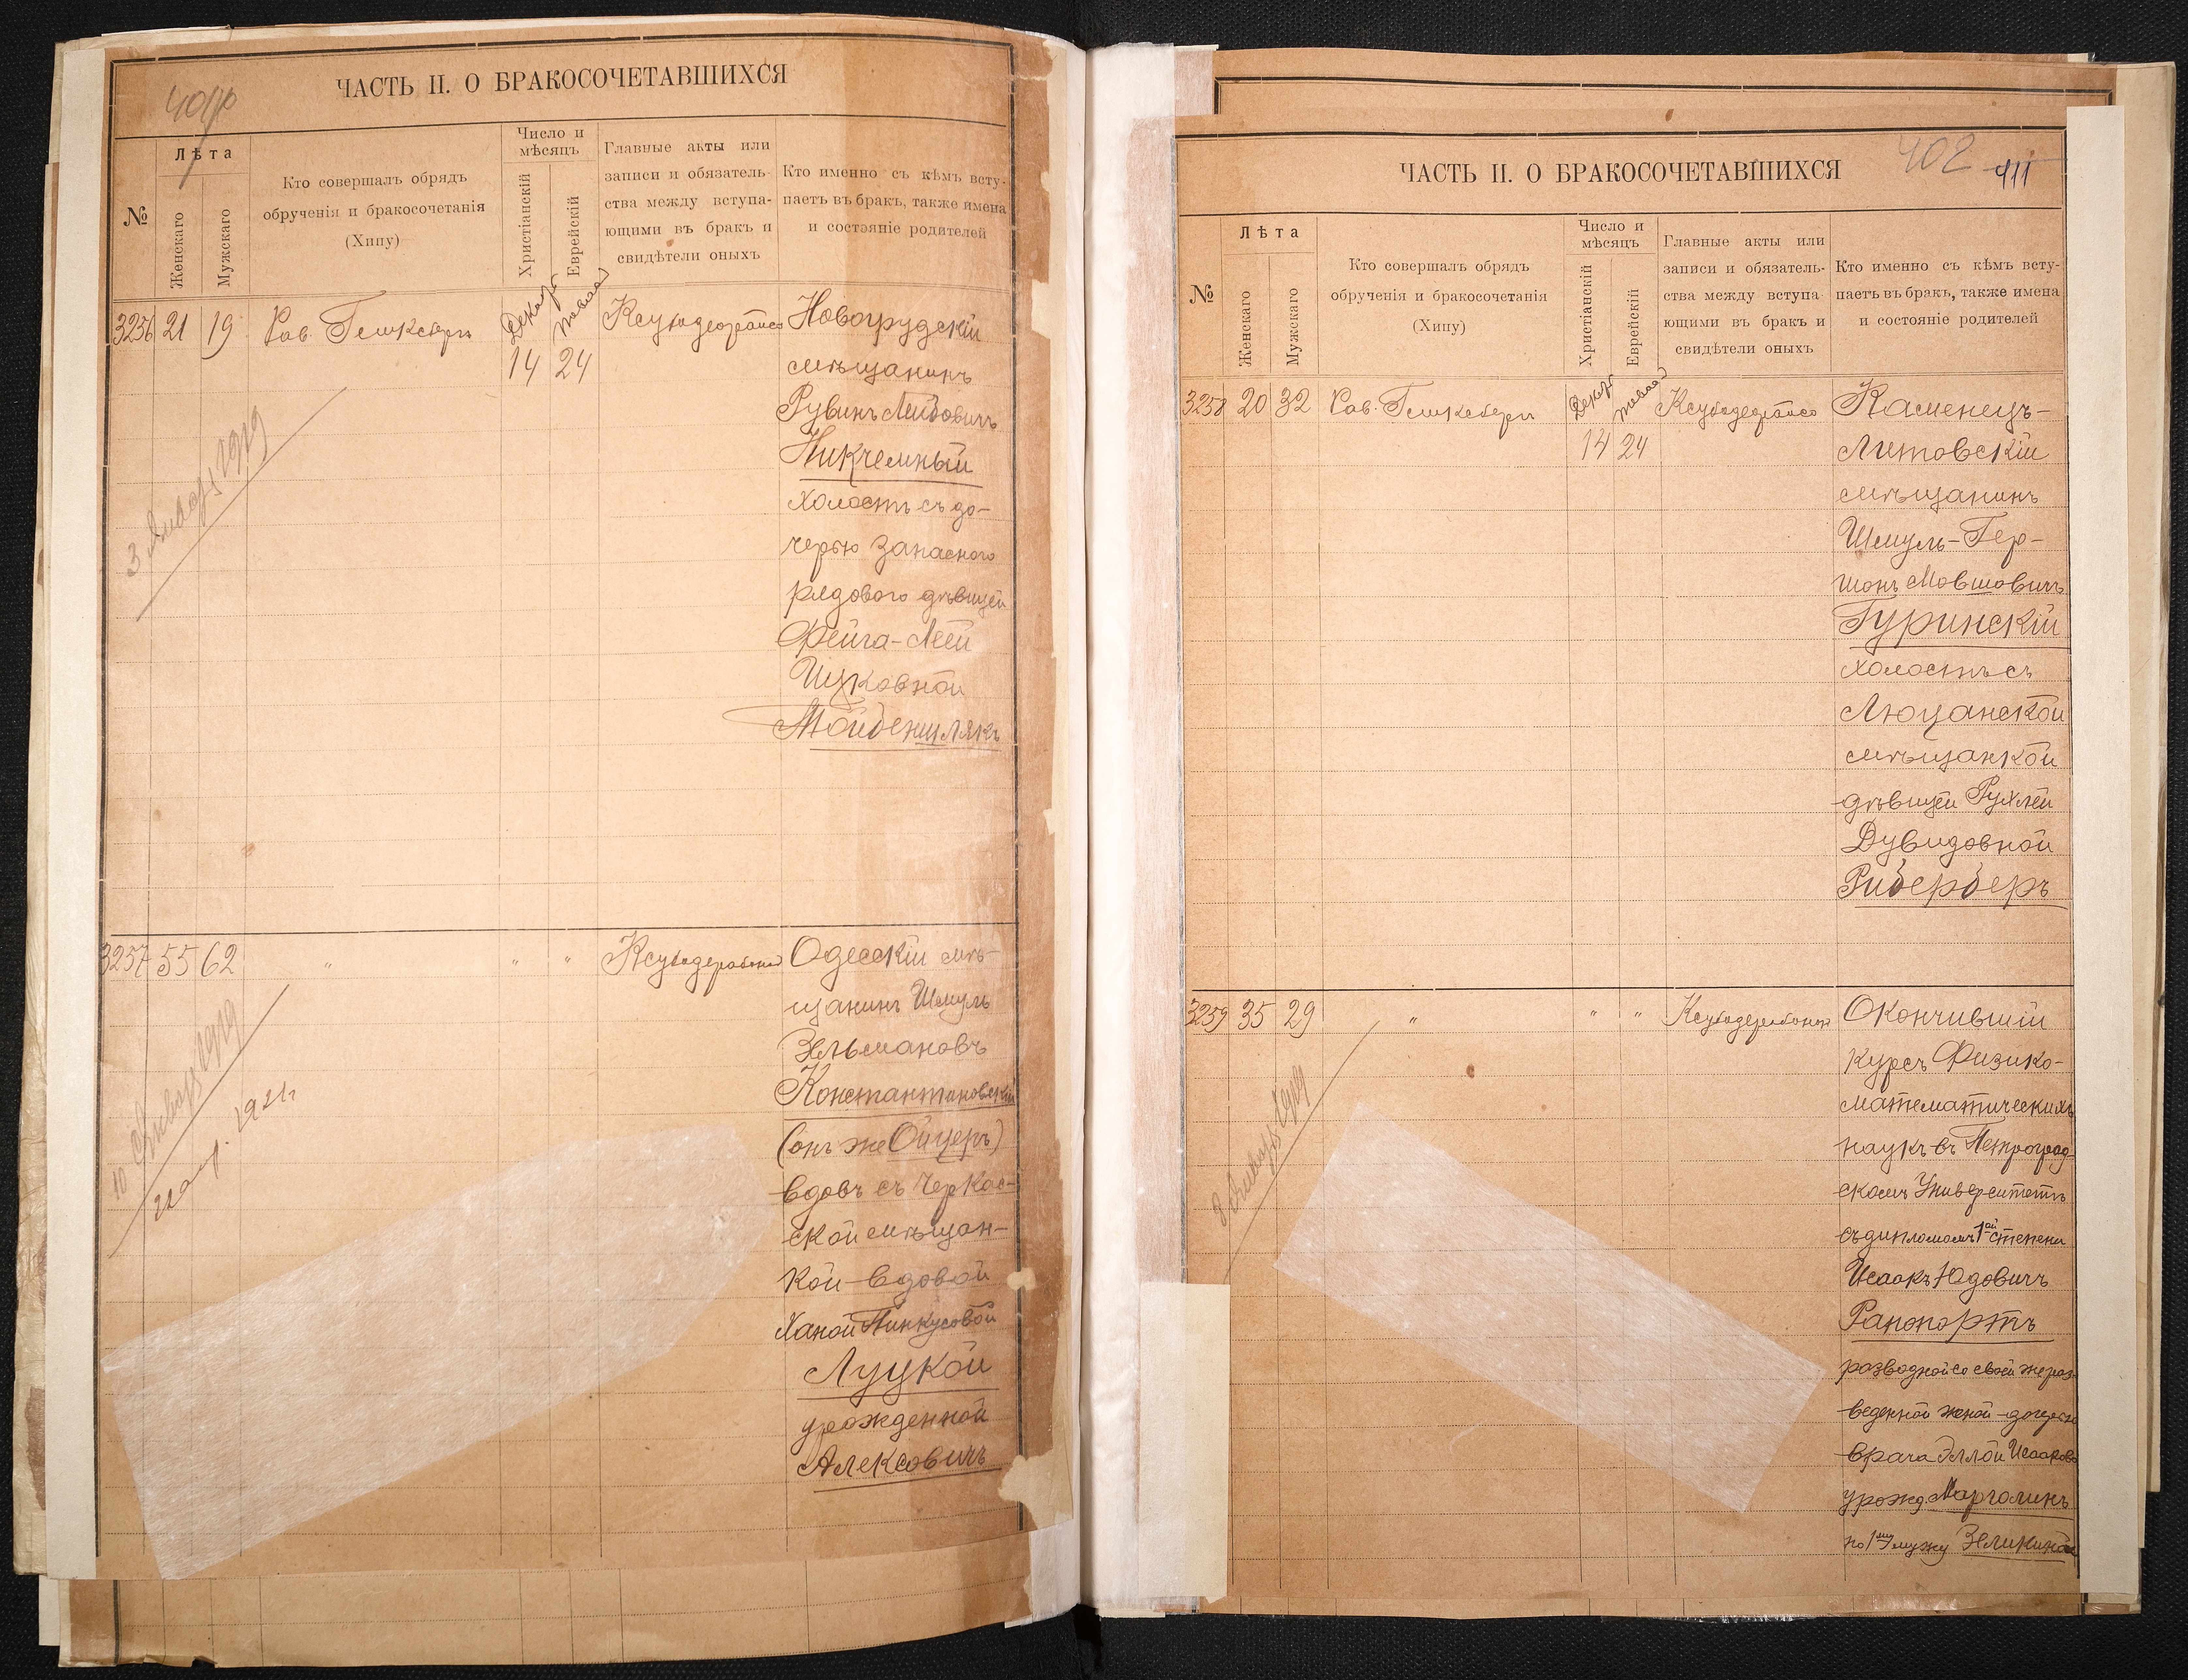 ЧАСТЬ II. О БРАКОСОЧЕТАВШИХСЯ
№
Лѣта
Женскаго
Мужскаго
Кто совершалъ обрядъ
обрученія и бракосочетанія
(Хипу)
Число и
мѣсяцъ
Христіанскій
Еврейскій
Главные акты или
записи и обязатель-
ства между вступа-
ющими въ бракъ и
свидѣтели оныхъ
Кто именно съ кѣмъ всту-
паетъ въ бракъ, также имена
и состояніе родителей
3256 21 19 Рав.
14 24
Новогрудскій
мѣщанинъ
Рувинъ Лейбовичъ
Никчемный
холостъ съ до-
черью запасного
рядового дѣвицей
Фейга-Леей
Ицковной
Мойденшлякъ
3 Января 1919
3257 55 62 " " "
Одесскій мѣ-
щанинъ Шмуль
Зельмановъ
Константиновскій
(онъ же Ойцеръ)
вдовъ съ Черкас-
ской мѣщан-
кой-вдовой
Ханой Пинкусовой
Луцкой
урожденной
Алексовичъ
10 Января 1919
1921г
ЧАСТЬ II. О БРАКОСОЧЕТАВШИХСЯ
402 411
№
Лѣта
Женскаго
Мужскаго
Кто совершалъ обрядъ
обрученія и бракосочетанія
(Хипу)
Число и
мѣсяцъ
Христіанскій
Еврейскій
Главные акты или
записи и обязатель-
ства между вступа-
ющими въ бракъ и
свидѣтели оныхъ
Кто именно съ кѣмъ всту-
паетъ въ бракъ, также имена
и состояніе родителей
3258 20 32 Рав.
14 24
Каменецъ-
Литовскій
мѣщанинъ
Шмуль-Гер-
шонъ Мовшовичъ
Гуринскій
холостъ съ
Люцанской
мѣщанкой
дѣвицей Рухлей
Дувидовной
Риберберъ
3259 35 29 " " "
Окончившій
курсъ Физико-
математическихъ
наукъ въ Петроград-
скомъ Университетѣ
съ дипломомъ 1ой степени
Исаакъ Юдовичъ
Рапопортъ
разводной со своей же раз-
веденной женой-дочерью
врача Эллой Исааков
урожд. Марголинъ
по 1му мужу Зеликиной
Января 1919